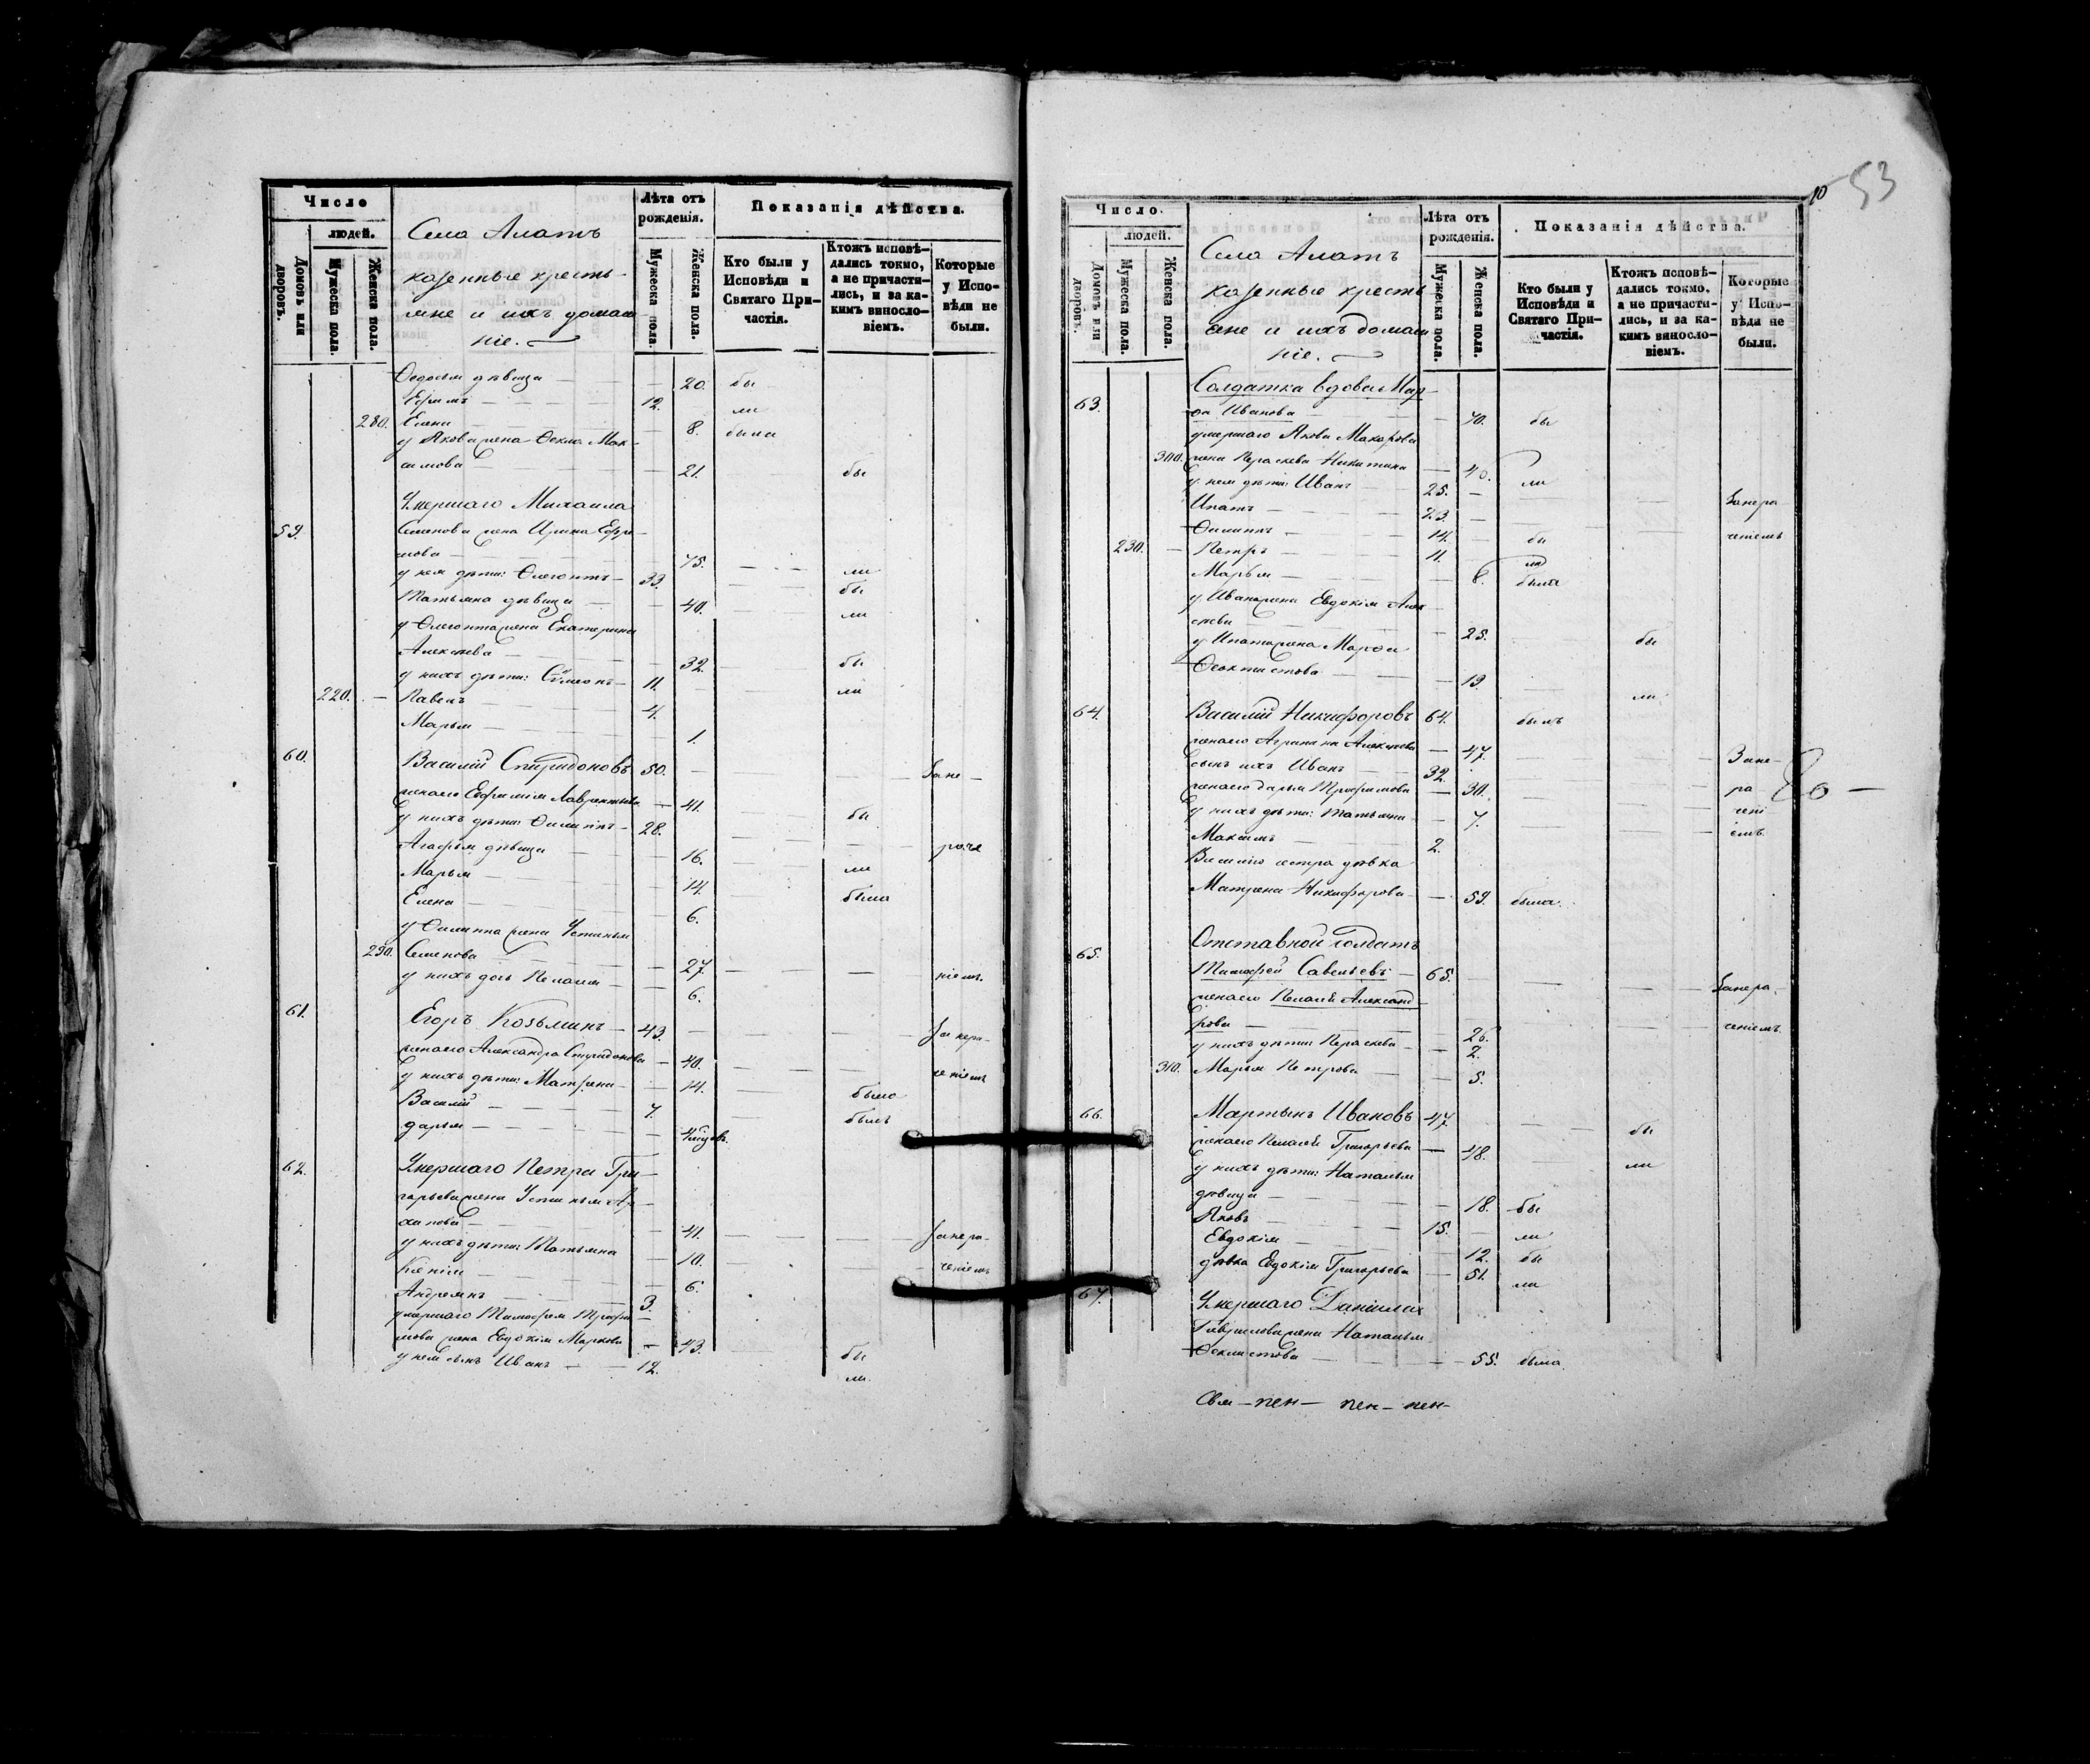 Число
людей.
Домовъ или дворовъ.
Мужеска пола.
Женска пола.
Села Алатъ
казенные кресть-
яне и ихъ домаш
ніе.
Лѣта отъ рожденія.
Мужеска пола.
Женска пола.
Показанія дѣйства.
Кто были у Исповѣди и Святаго При-частія.
Ктожъ исповѣ-дались токмо, а не причасти-лись, и за ка-кимъ винсло-віемъ.
Которые у Испо-вѣди не были.
Ѳедосья дѣвица — 20. бы
Ефимъ — 12. ли
280. Елена — 8. была
у Якова жена Ѳекла Мак-
симова — 21. бы
Умершаго Михаила
59. Семенова жена Ирина Ефре-
мова — 75. ли
у нея дѣти: Олегонтъ — 33. бы
Татьяна дѣвица — 40. ли
у Олегонта жена Екатерина
Алексѣева — 32. бы
у нихъ дѣти: Сѵмеонъ — 11. ли
220. Павелъ — 4.
Марья — 1.
60. Василій Спиридоновъ 50. — Зане-
жена его Евфимія Лаврентьева — 41. бы
у нихъ дѣти: Филиппъ — 28. раче
Агафья дѣвица — 16. ли
Марья — 14. была
Елена — 6.
у Филиппа жена Устинья
290. Семенова — 27. ніемъ.
у нихъ дочь Пелагія — 6.
61. Егоръ Козьминъ — 43. Занера-
жена его Александра Спиридонова — 40. ченіемъ
у нихъ дѣти: Матрена — 14. была
Василій — 7. былъ
Дарья —
62. Умершаго Петра Гри-
горьева жена Устинья Ар-
хипова — 41. Занера-
у нихъ дѣти: Татьяна 10. ченіемъ
Ксенія — 6.
Андреянъ — 3.
умершаго Тимофея Трофи-
мова жена Евдокія Маркова — 43. бы
у нея сынъ Иванъ — 12. ли.
10 53
Число.
людей.
Домовъ или дворовъ.
Мужеска пола.
Женска пола.
Села Алатъ
казенные кресть
яне и ихъ домаш
ніе.
Лѣта отъ рожденія.
Мужеска пола.
Женска пола.
Показанія дѣйства.
Кто были у Исповѣди и Святаго При-частія.
Ктожъ исповѣ-дались токмо, а не причасти-лись, и за ка-кимъ винсло-віемъ.
Которые у Испо-вѣди не были.
Солдатка вдова Мар-
63. ѳа Иванова — 70. бы
умершаго Якова Макарова
300. жена Параскева Никитина — 40. ли
у нея дѣти: Иванъ — 25. — Занера
Ипатъ — 23.
Филиппъ — 14. бы ченіемъ
230. Петръ — 11. ли
Марья — 8. была
у Ивана жена Евдокія Алек-
сѣева — 25. бы
у Ипата жена Марѳа
Ѳеоктистова — 19. ли
64. Василій Никифоровъ 64. былъ
жена его Агрипина Алексѣева — 47. Зане-
сынъ ихъ Иванъ 32. ра
жена его Дарья Трофимова — 30. чені
у нихъ дѣти: Татьяна — 7. емъ
Максимъ — 2.
Василія сестра дѣвка
Матрена Никифорова — 59. была.
Отставной солдатъ
65. Тимофей Савельевъ — 65. Занера-
жена его Пелагія Александ-
рова — 26. ченіемъ
у нихъ дѣти: Параскева — 2.
310. Марья Петрова — 5.
66. Мартынъ Ивановъ 47. бы
жена его Пелагія Григорьева — 48. ли
у нихъ дѣти: Наталья
дѣвица — 18. бы
Яковъ — 15. ли
Евдокія — 12. бы
дѣвка Евдокія Григорьева — 51. ли
67. Умершаго Даніила
Гаврилова жена Наталья
Ѳеклистова — 55. была.